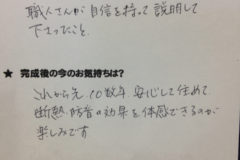 職人さんが自信を持って説明して
下さったこと。
★ 完成後の今のお気持ちは?
これから先、10数年、安心して住めて、
断熱、防音の効果を体感できるのが
楽しみです